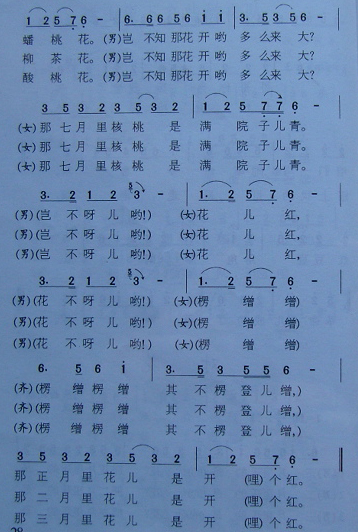 1 2 5 7 6 - | 6. 6 6 6 6 i i | 3. 5 3 5 -
蟠 桃 花。 (男)岂 不知 那花 开 哟 多 么来 大?
柳 茶 花。 (男)岂 不知 那花 开 哟 多 么来 大?
酸 桃 花。 (男)岂 不知 那花 开 哟 多 么来 大?
3 5 3 5 3 5 3 2 | 1 2 5 7 7 6 -
(女)那 七 月 里 核 桃 是 满 院 子 儿 青。
(女)那 七 月 里 核 桃 是 满 院 子 儿 青。
(女)那 七 月 里 核 桃 是 满 院 子 儿 青。
3. 2 1 2 3 - | 1. 2 5 7 6 -
(男)(岂 不 呀 儿 哟!) (女)花 儿 红,
(男)(岂 不 呀 儿 哟!) (女)花 儿 红,
(男)(岂 不 呀 儿 哟!) (女)花 儿 红,
3. 2 1 2 3 - | 1. 2 5 7 6 -
(男)(花 不 呀 儿 哟!) (女)(楞 缯 缯)
(男)(花 不 呀 儿 哟!) (女)(楞 缯 缯)
(男)(花 不 呀 儿 哟!) (女)(楞 缯 缯)
6. 5 6 i | 3. 3 5 3 5 -
(齐)(楞 缯 楞 缯 其 不 楞 登 儿 缯,)
(齐)(楞 缯 楞 缯 其 不 楞 登 儿 缯,)
(齐)(楞 缯 楞 缯 其 不 楞 登 儿 缯,)
3 5 3 5 3 5 3 2 | 1 2 5 7 6 -
那 正 月 里 花 儿 是 开 (哩)个 红。
那 二 月 里 花 儿 是 开 (哩)个 红。
那 三 月 里 花 儿 是 开 (哩)个 红。
28